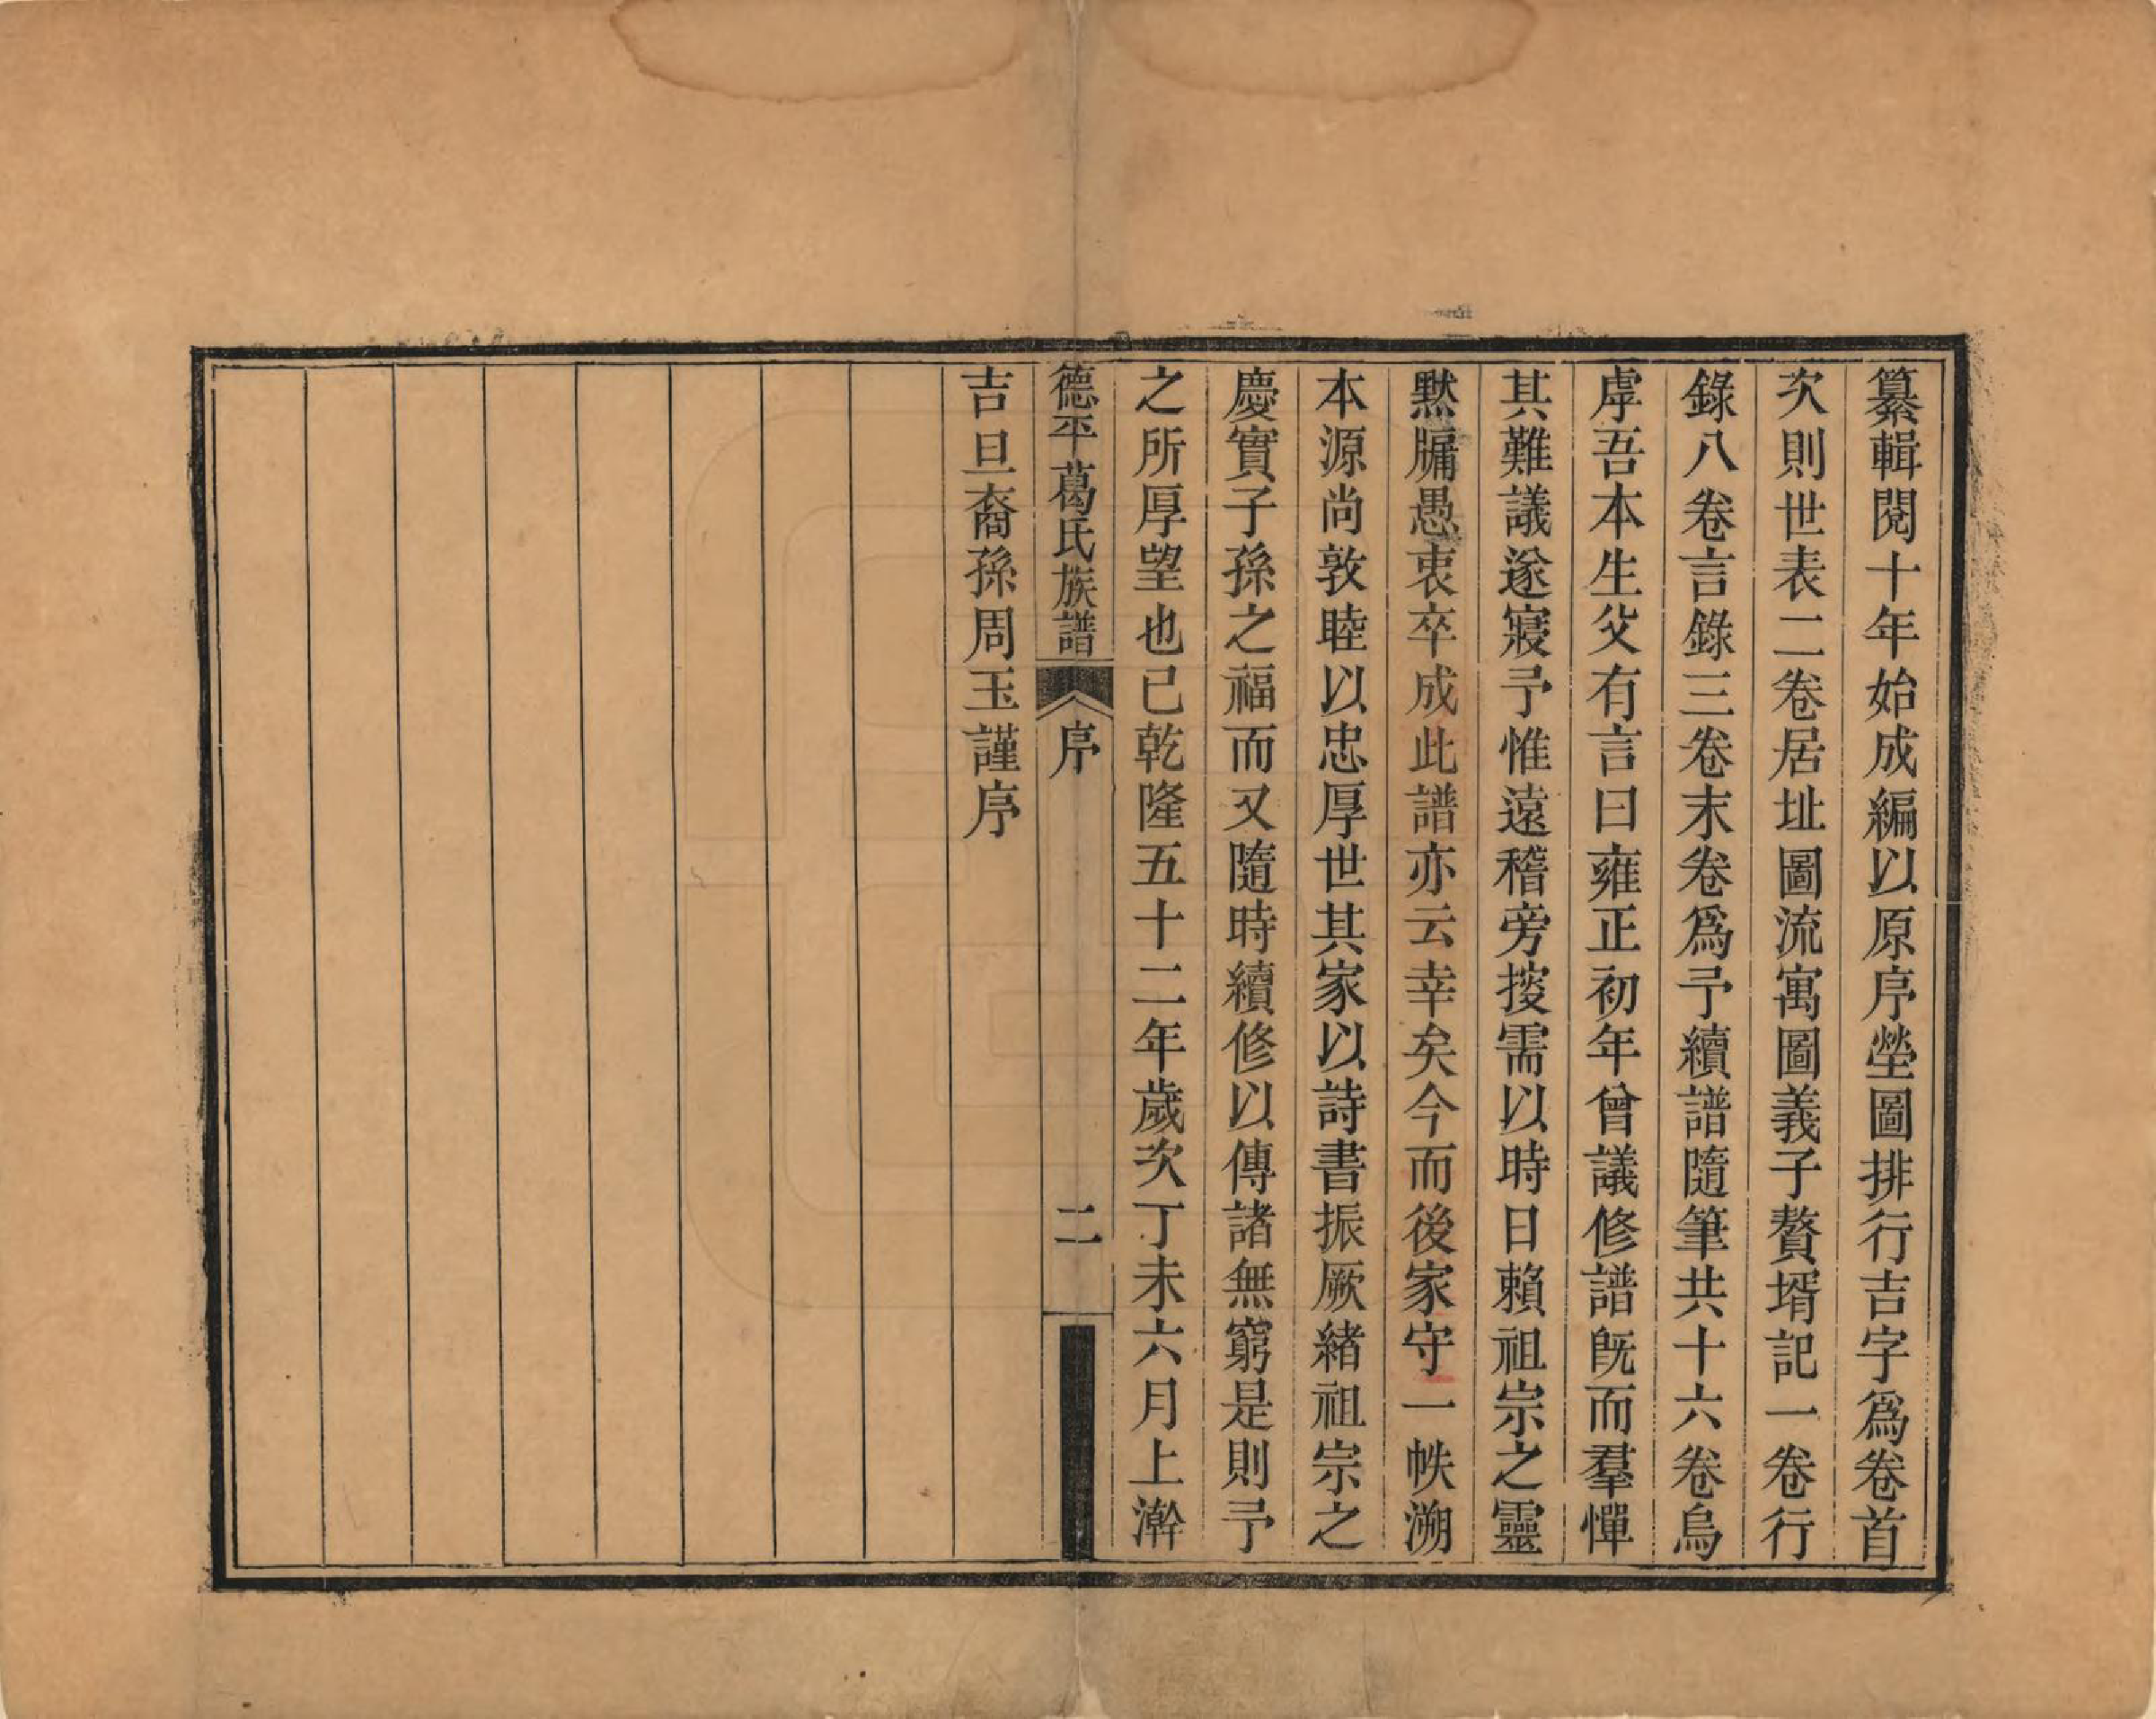 纂輯閱十年始成編以原序塋圖排行吉字爲卷首
次則世表二卷居址圖流寓圖義子贅壻記一卷行
錄八卷言錄三卷末卷爲予續譜隨筆共十六卷烏
虖吾本生父有言曰雍正初年曾議修譜旣而羣憚
其難議遂寢予惟遠稽旁搜需以時日賴祖宗之靈
黙牖愚衷卒成此譜亦云幸矣今而後家守一帙溯
本源尚敦睦以忠厚世其家以詩書振厥緒祖宗之
慶實子孫之福而又隨時續修以傳諸無窮是則予
之所厚望也已乾隆五十二年歲次丁未六月上澣
德平葛氏族譜 序 二
吉旦裔孫周玉謹序